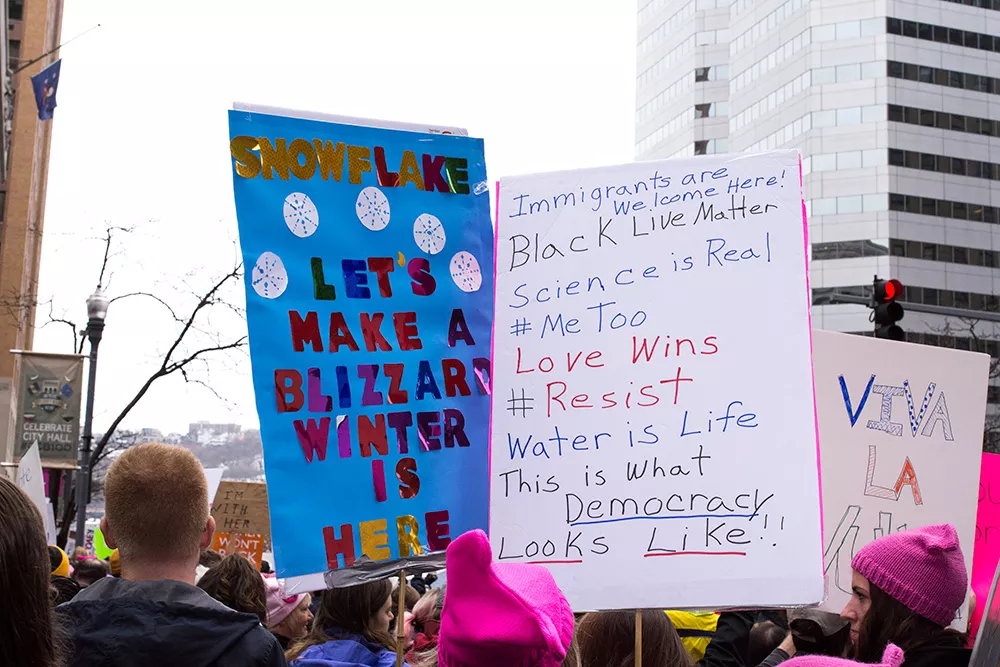 SNOWFLAKE
LET'S
MAKE A
BLIZZARD
WINTER
IS
HERE
Immigrants are
Welcome Here!
Black Live Matter
Science is Real
# Me Too
Love Wins
# Resist
Water is Life
This is what
Democracy
Looks Like!!
VIVA
LA
CELEBRATE
CITY HALL
I'M
WITH
HER